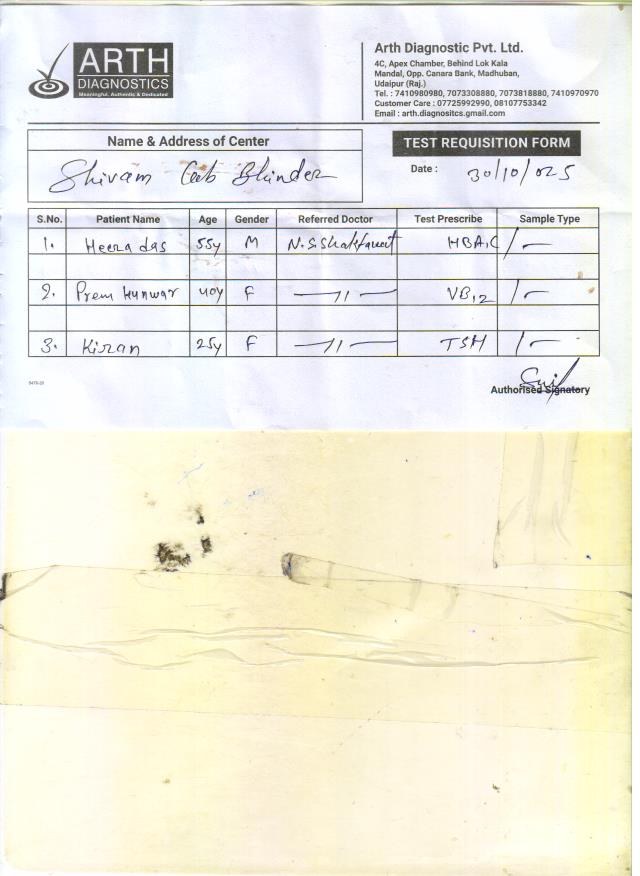 ARTH
DIAGNOSTICS
Meaningful, Authentic & Dedicated
Arth Diagnostic Pvt. Ltd.
4C, Apex Chamber, Behind Lok Kala
Mandal, Opp. Canara Bank, Madhuban,
Udaipur (Raj.)
Tel. : 7410980980, 7073308880, 7073818880, 7410970970
Customer Care : 07725992990, 08107753342
Email : arth.diagnositcs.gmail.com
Name & Address of Center
Shivam Bhinder
TEST REQUISITION FORM
Date : 30/10/025
S.No. Patient Name Age Gender Referred Doctor Test Prescribe Sample Type
1. Heera das 55y M N.S. Shaktawat HBA1C
2. Prem Kunwar 40y F —11— VB12
3. Kiran 25y F —11— TSH
Authorised Signatory